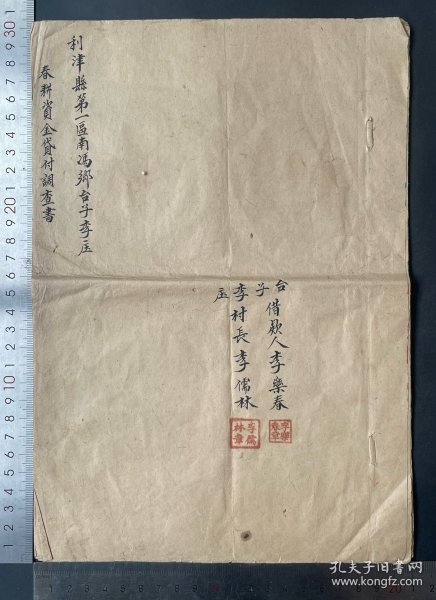 利津縣第一區南馮鄉台子李庄
春耕資金貸付調查書
台子
借款人李樂春
李村長李儒林
庄
李樂春章
李儒林章
孔夫子旧书网
www.kongfz.com